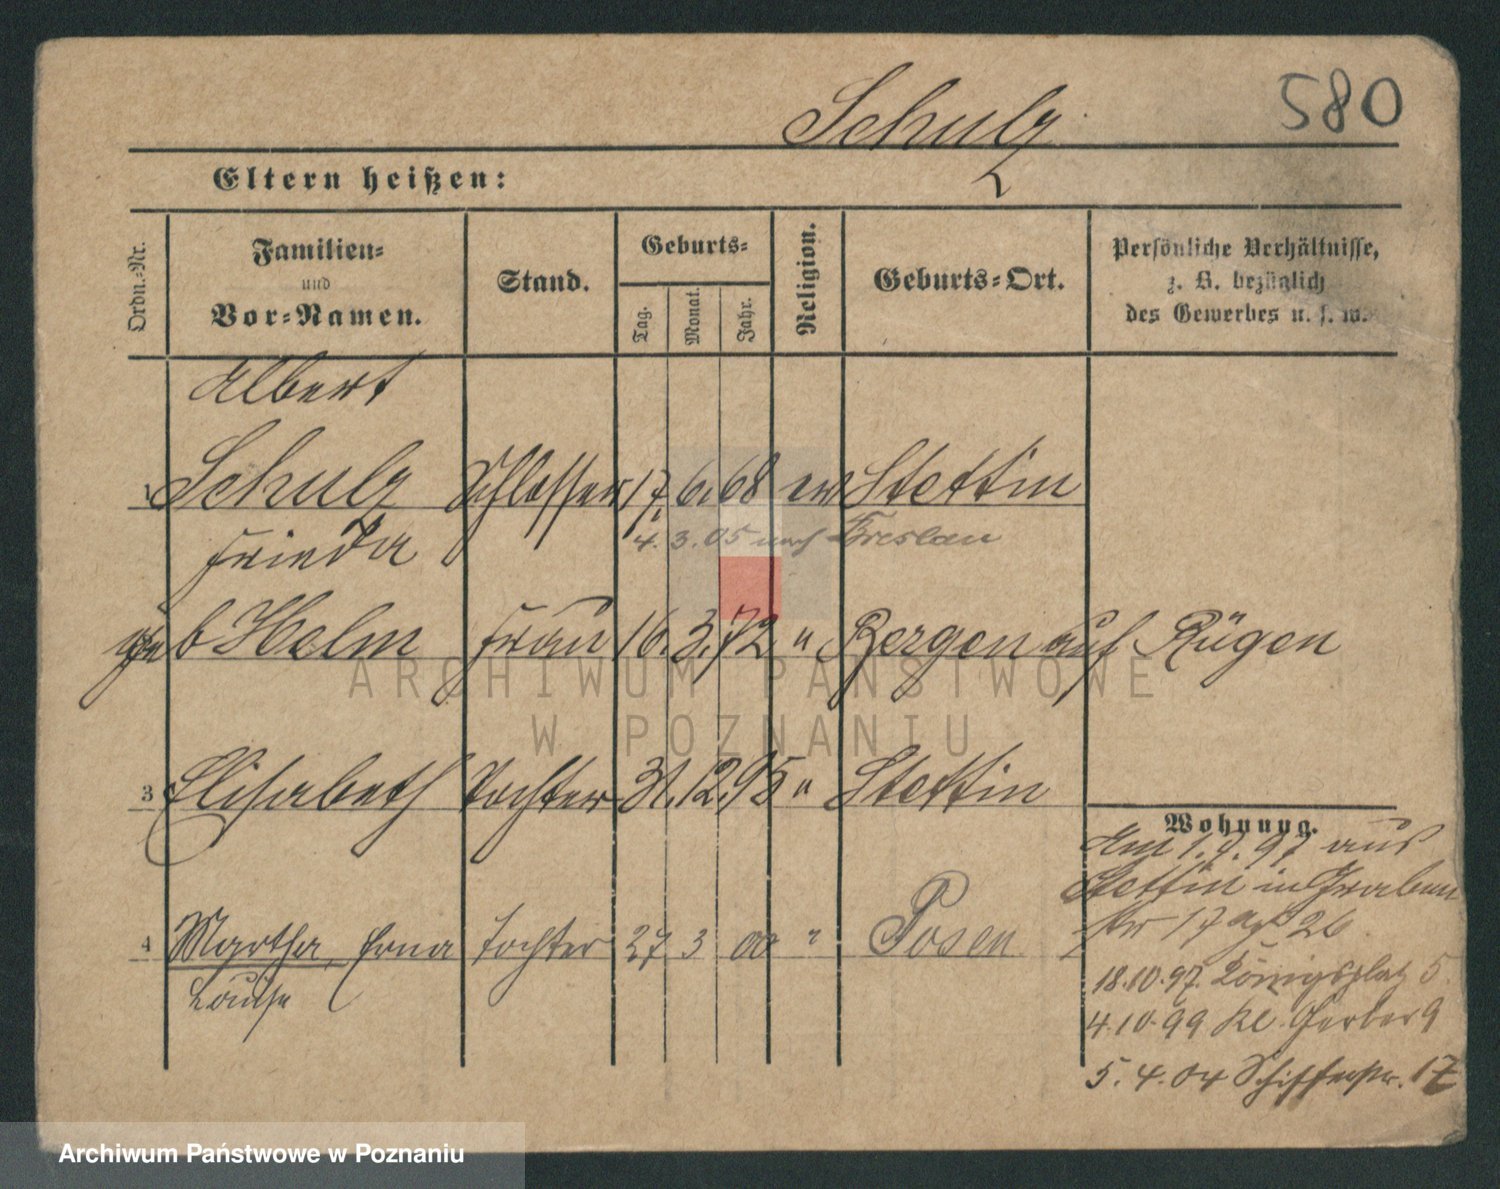 580
Schulz
Eltern heißen:
Ordn.-Nr.
Familien-
und
Vor-Namen.
Stand.
Geburts-
Tag.
Monat.
Jahr.
Religion.
Geburts-Ort.
Persönliche Verhältnisse,
z. B. bezüglich
des Gewerbes u. s. w.
Albert
1 Schulz Schlosser 17. 6. 68 ev Stettin
4. 3. 05 nach Breslau
Frieda
geb Helm Frau 16. 3. 72 " Bergen auf Rügen
3 Elisabeth Tochter 31. 12. 95 " Stettin
4 Martha, Erna Tochter 27 3 00 " Posen
Louise
Wohnung.
Am 1. 7. 97 aus
Stettin in Graben
Nr 17 26
18.10.97. Königsplatz 5.
4.10.99 Kl. Gerber 9
5. 4. 04 Schifferstr. 17
ARCHIWUM PAŃSTWOWE
W POZNANIU
Archiwum Państwowe w Poznaniu